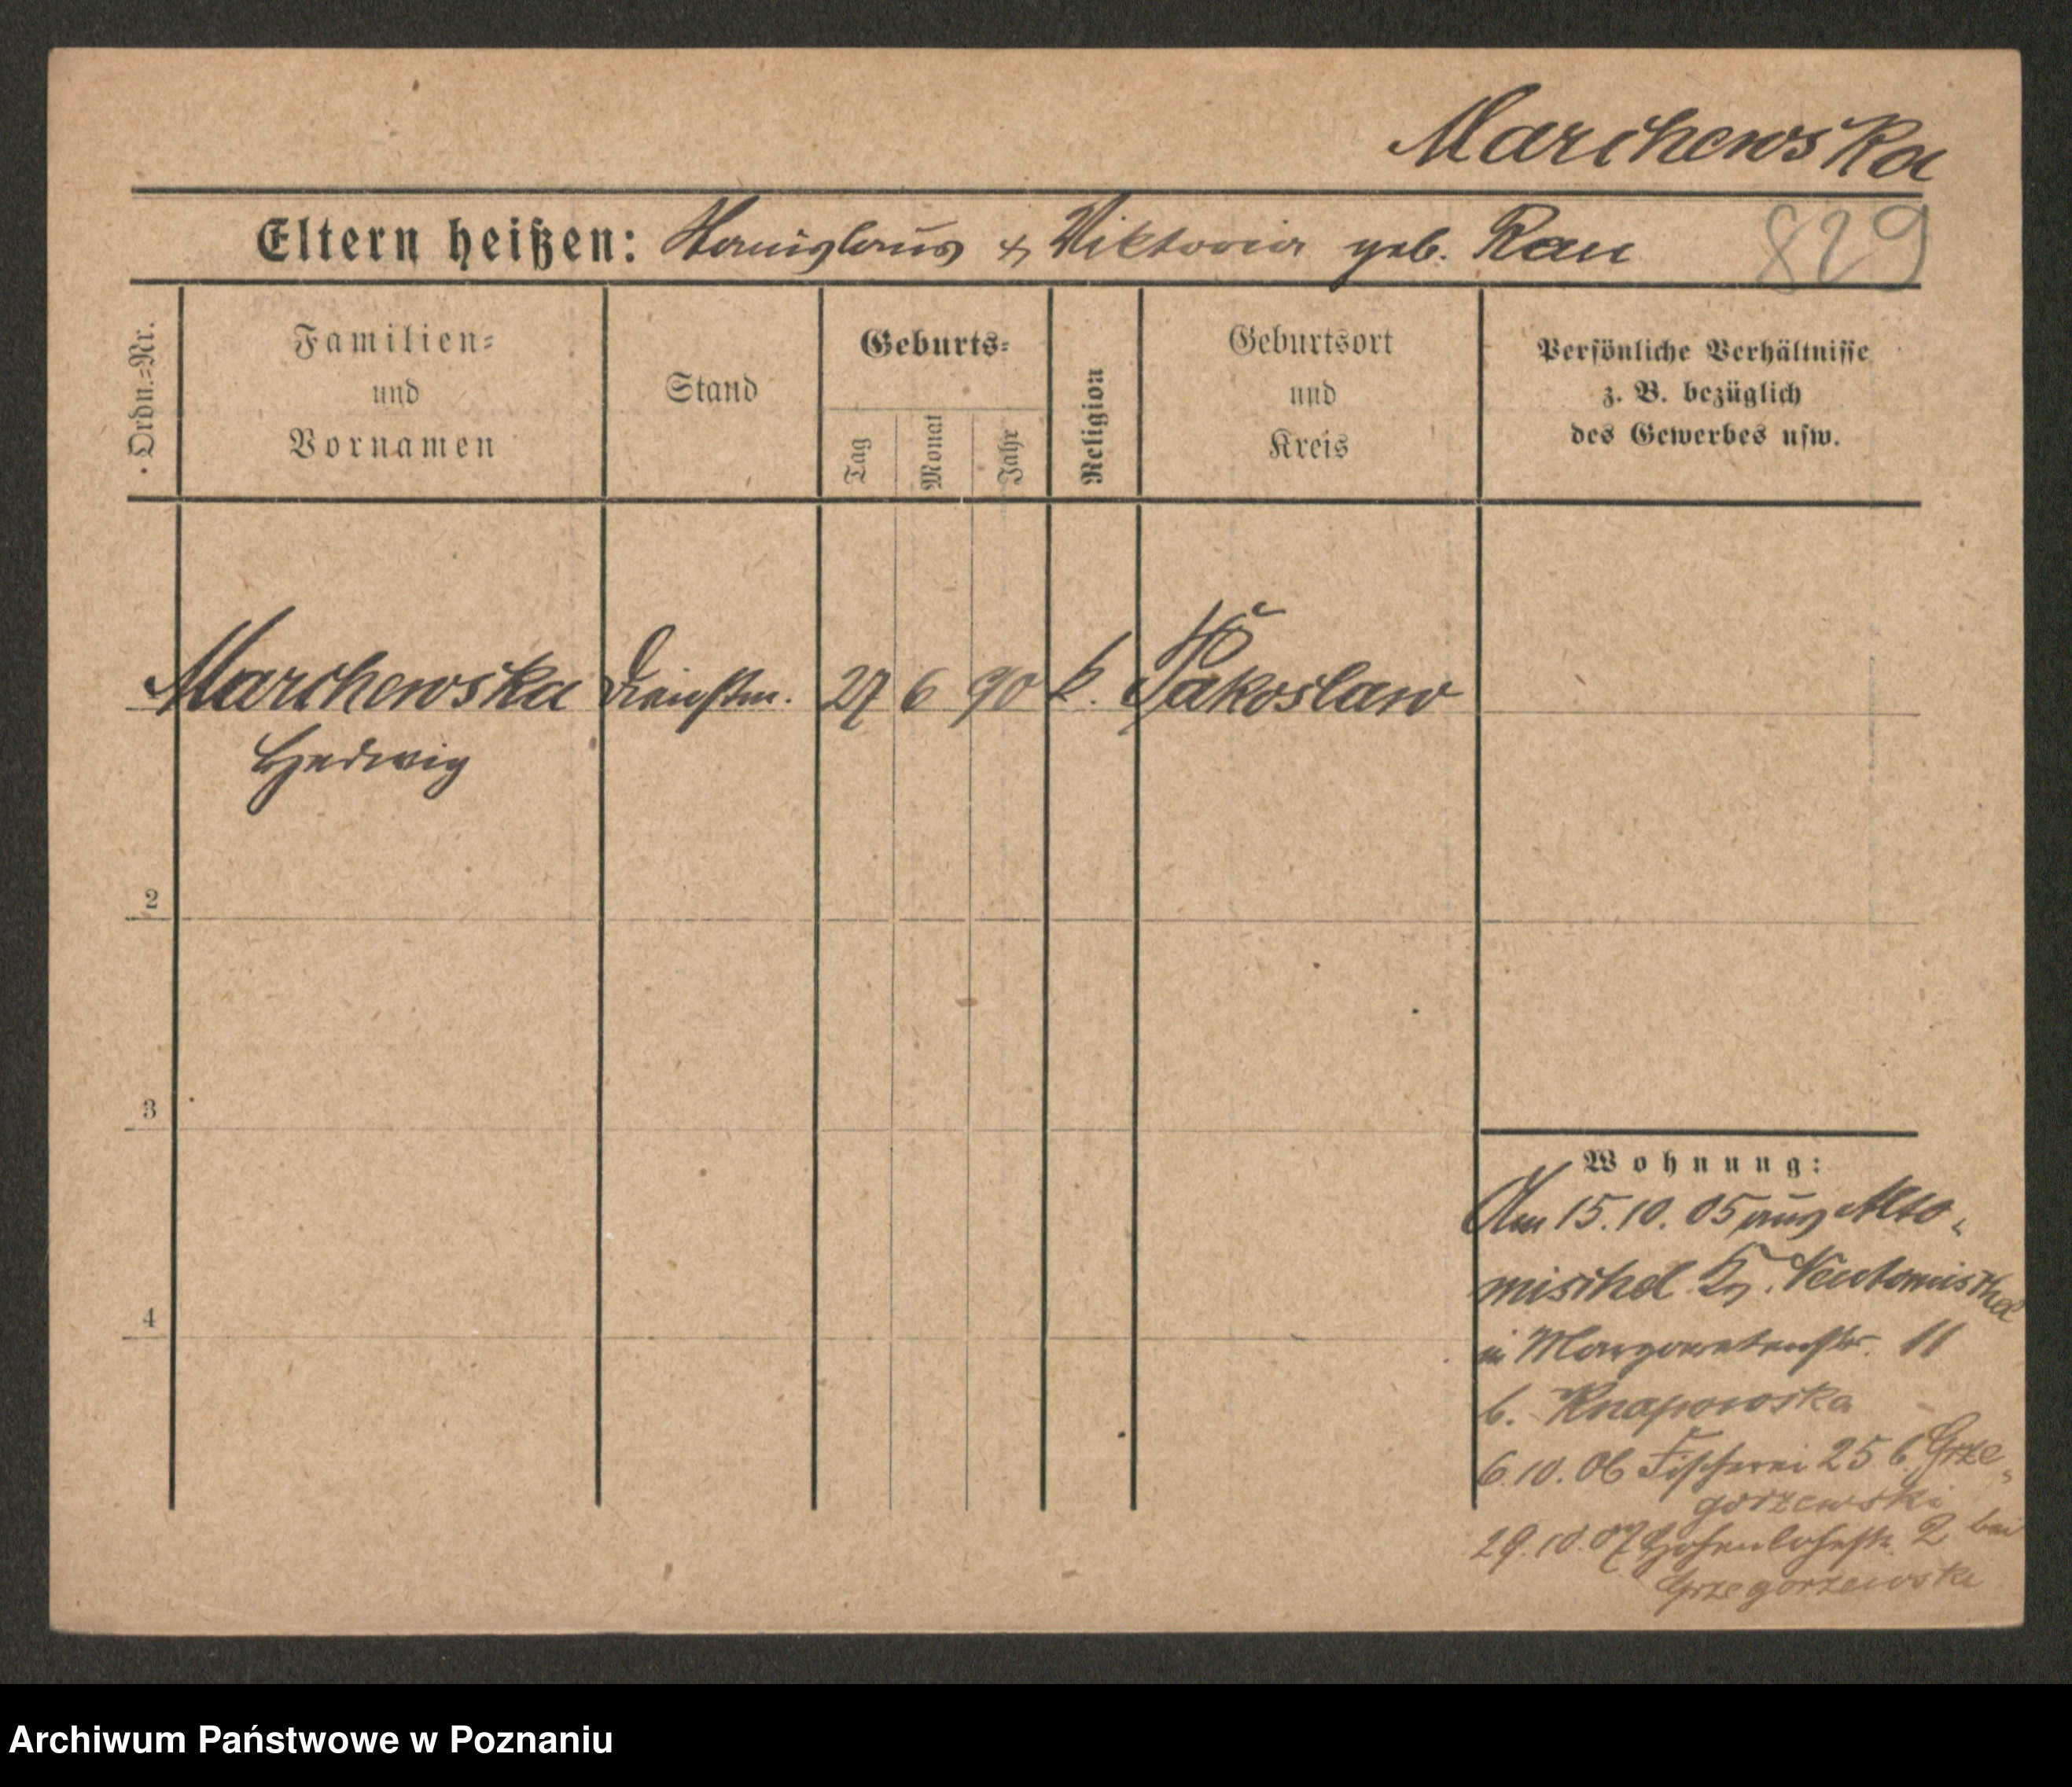 Marchewska
Eltern heißen: Stanislaus & Viktoria geb. Rau
829
Ordn.=Nr.
Familien=
und
Vornamen
Stand
Geburts=
Tag
Monat
Jahr
Religion
Geburtsort
und
Kreis
Persönliche Verhältnisse
z. B. bezüglich
des Gewerbes usw.
Marchewska Dienstm. 27 6 90 k. Pakoslaw
Hedwig
2
3
4
Wohnung:
Am 15.10.05 aus Alto-
mischel Kr. Neutomischel
in Margaretenstr. 11
b. Knapowska
6.10.06 Fischerei 25 b. Grze-
gorzewski
29.10.07 Hohenlohestr. 2 bei
Grzegorzewski
Archiwum Państwowe w Poznaniu